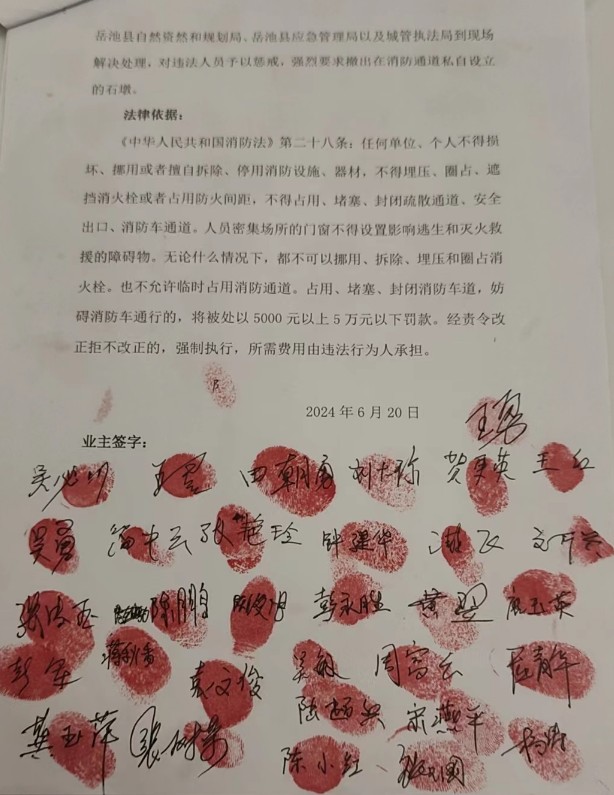 岳池县自然资然和规划局、岳池县应急管理局以及城管执法局到现场
解决处理，对违法人员予以惩戒，强烈要求撤出在消防通道私自设立
的石墩。
法律依据：
《中华人民共和国消防法》第二十八条：任何单位、个人不得损
坏、挪用或者擅自拆除、停用消防设施、器材，不得埋压、圈占、遮
挡消火栓或者占用防火间距，不得占用、堵塞、封闭疏散通道、安全
出口、消防车通道。人员密集场所的门窗不得设置影响逃生和灭火救
援的障碍物。无论什么情况下，都不可以挪用、拆除、埋压和圈占消
火栓。也不允许临时占用消防通道。占用、堵塞、封闭消防车道，妨
碍消防车通行的，将被处以 5000 元以上 5 万元以下罚款。经责令改
正拒不改正的，强制执行，所需费用由违法行为人承担。
2024 年 6 月 20 日
王勇
业主签字：
田朝勇 贺更英 王红
吴勇 钟建华
陈鹏 彭永胜
彭军 吴敏 周富云
龚玉萍 宋燕平
陈小红